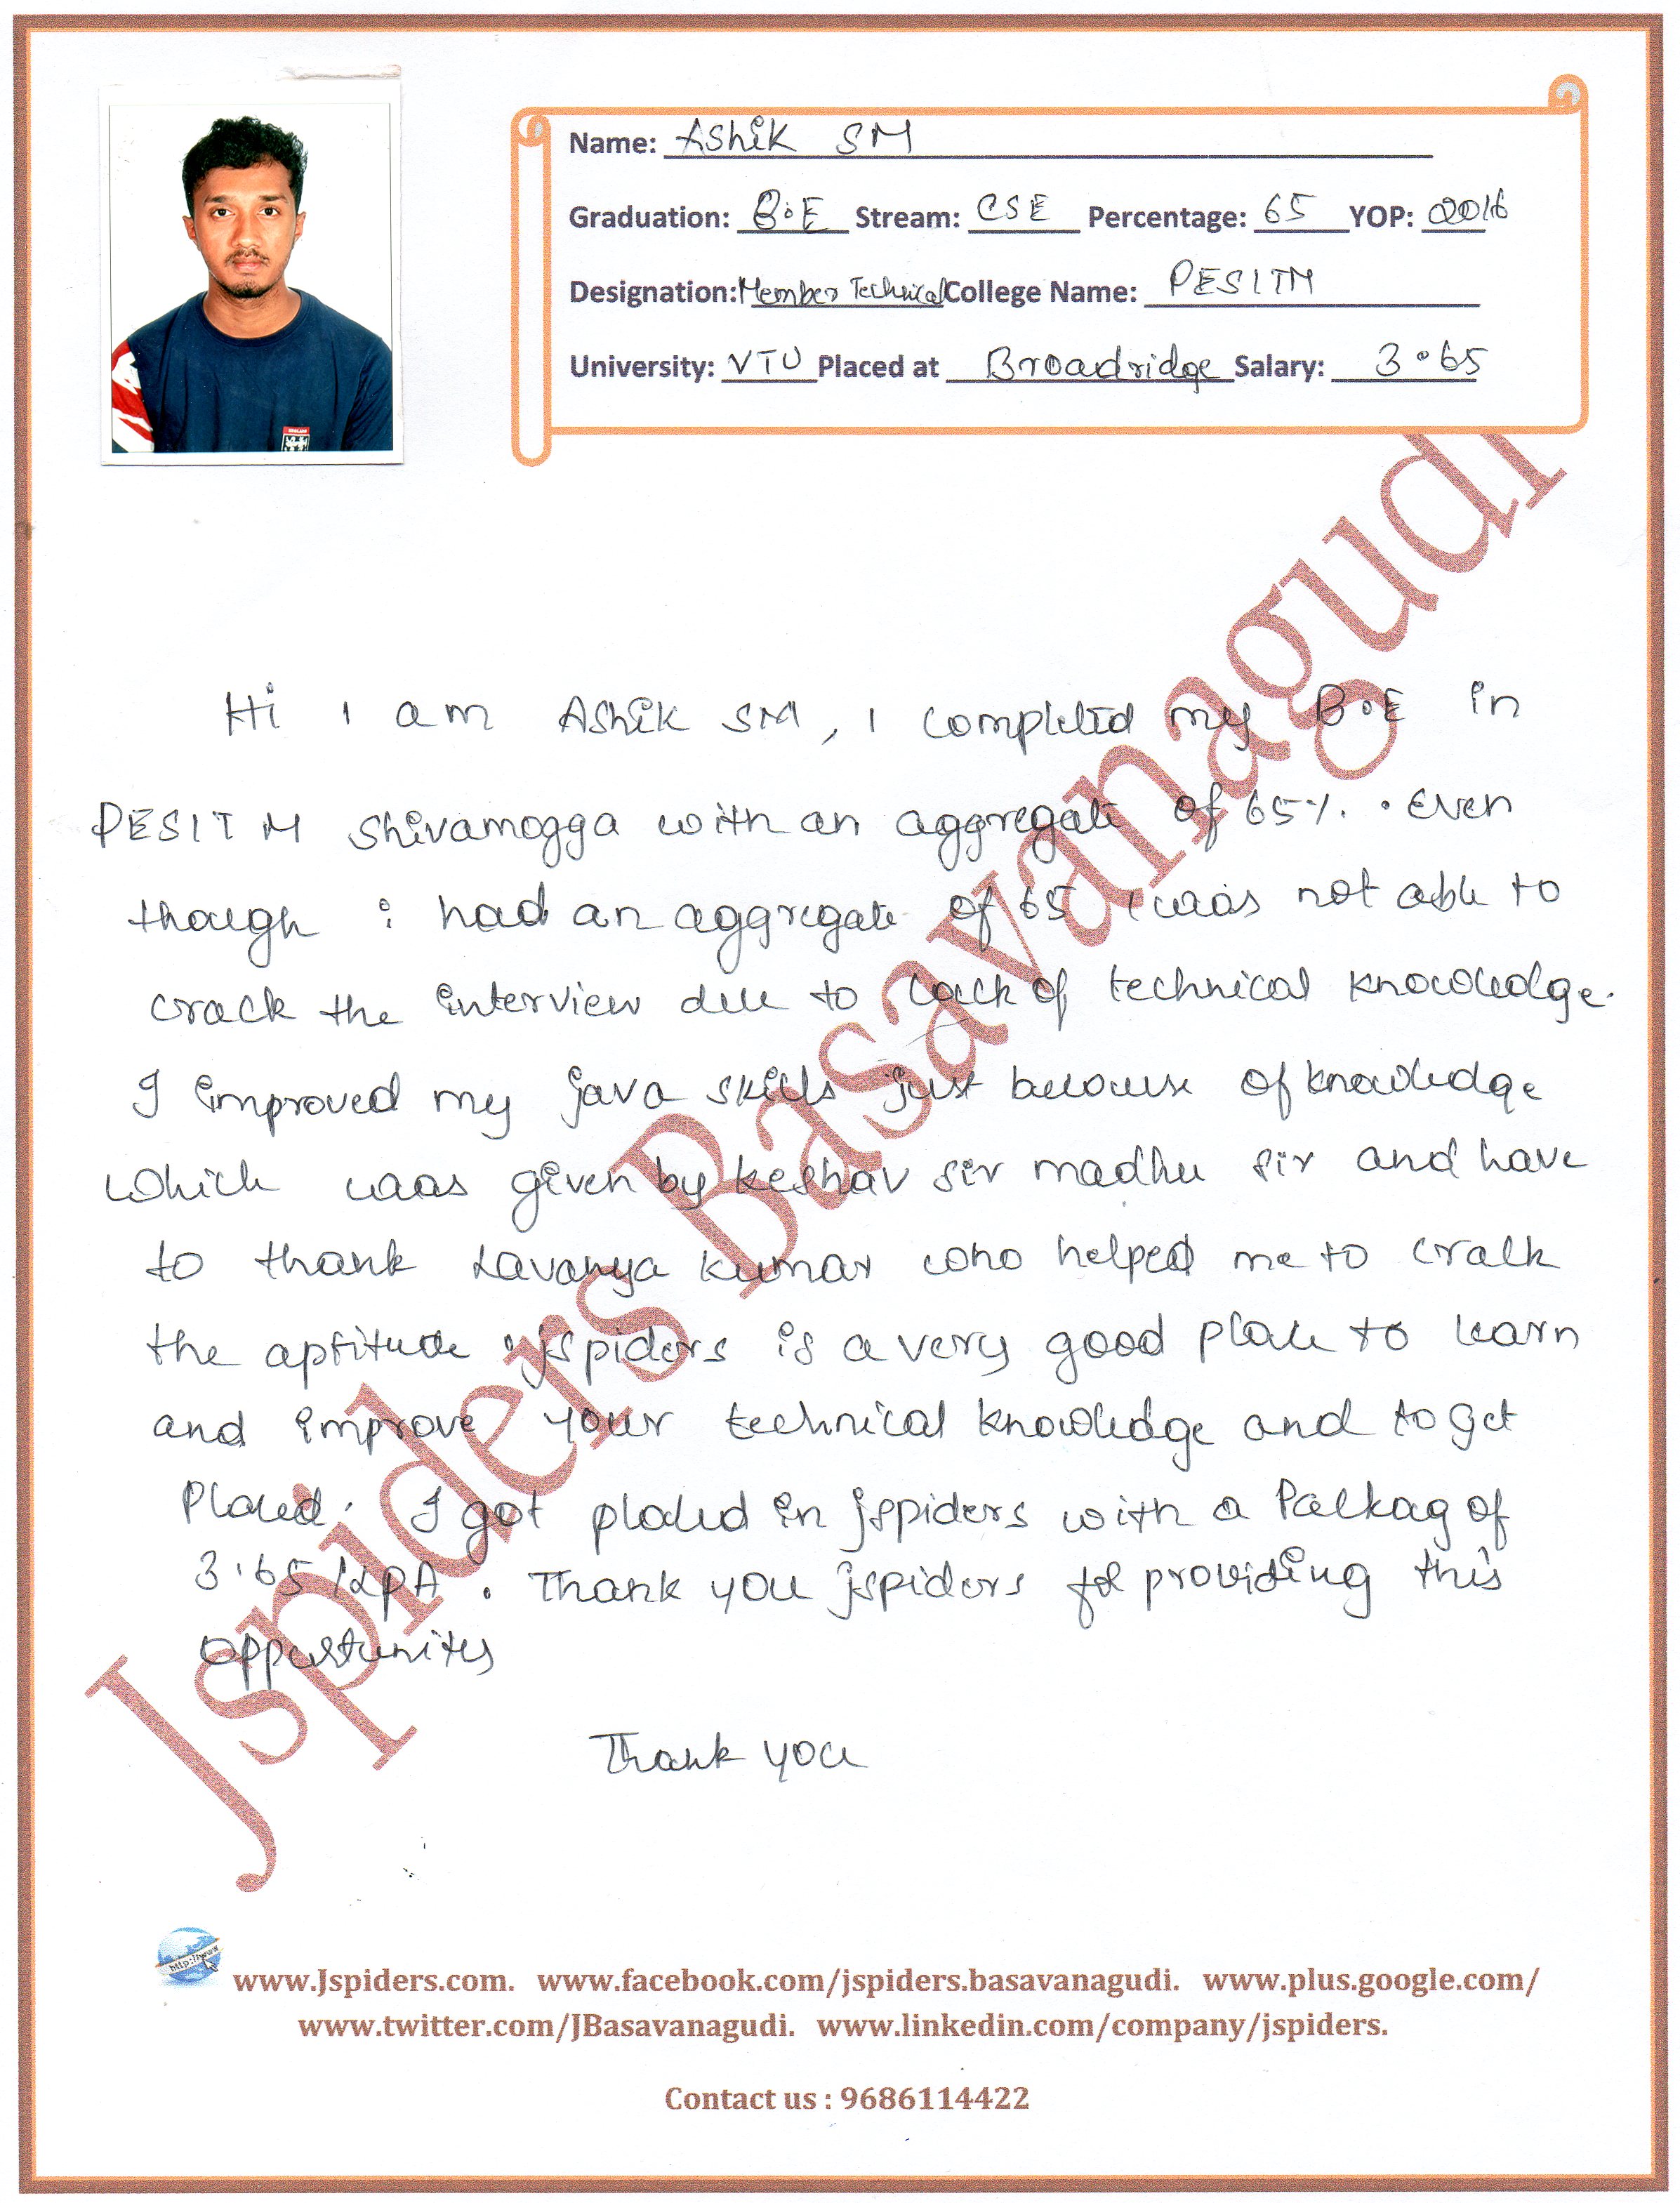 Name: Ashik SM
Graduation: B.E Stream: CSE Percentage: 65 YOP: 2016
Designation: Member Technical College Name: PESITM
University: VTU Placed at Broadridge Salary: 3.65
Jspiders Basavanagudi
Hi I am Ashik SM, I completed my B.E in
PESITM Shivamogga with an aggregate of 65%. Even
though i had an aggregate of 65 I was not able to
crack the interview due to lack of technical knowledge.
I improved my java skills just because of knowledge
which was given by keshav sir madhu sir and have
to thank Lavanya kumar who helped me to crack
the aptitude. jspiders is a very good place to learn
and improve your technical knowledge and to get
Placed. I got placed in jspiders with a Packag of
3.65 LPA. Thank you jspiders for providing this
opportunites
Thank you
http://www
www.Jspiders.com. www.facebook.com/jspiders.basavanagudi. www.plus.google.com/
www.twitter.com/JBasavanagudi. www.linkedin.com/company/jspiders.
Contact us : 9686114422